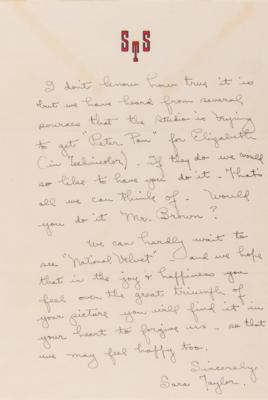 STS
I don't know how true it is
but we have heard from several
sources that the studio is trying
to get "Peter Pan" for Elizabeth
(in Technicolor). If they do we would
so like to have you do it - That's
all we can think of - Would
you do it Mr. Brown?
We can hardly wait to
see "National Velvet" and we hope
that in the joy & happiness you
feel over the great triumph of
your picture you will find it in
your heart to forgive us - so that
we may feel happy too.
Sincerely,
Sara Taylor.